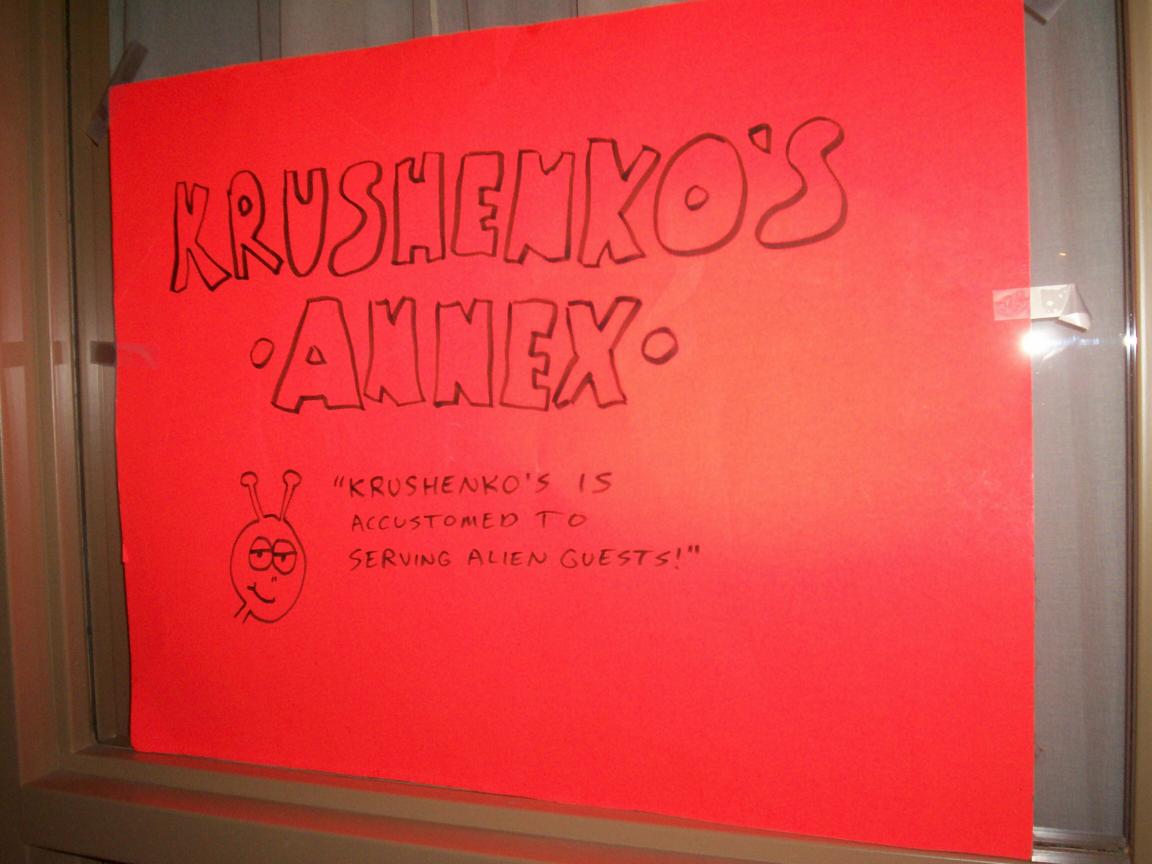 KRUSHENKO'S
·ANNEX·
"KRUSHENKO'S IS
ACCUSTOMED TO
SERVING ALIEN GUESTS!"